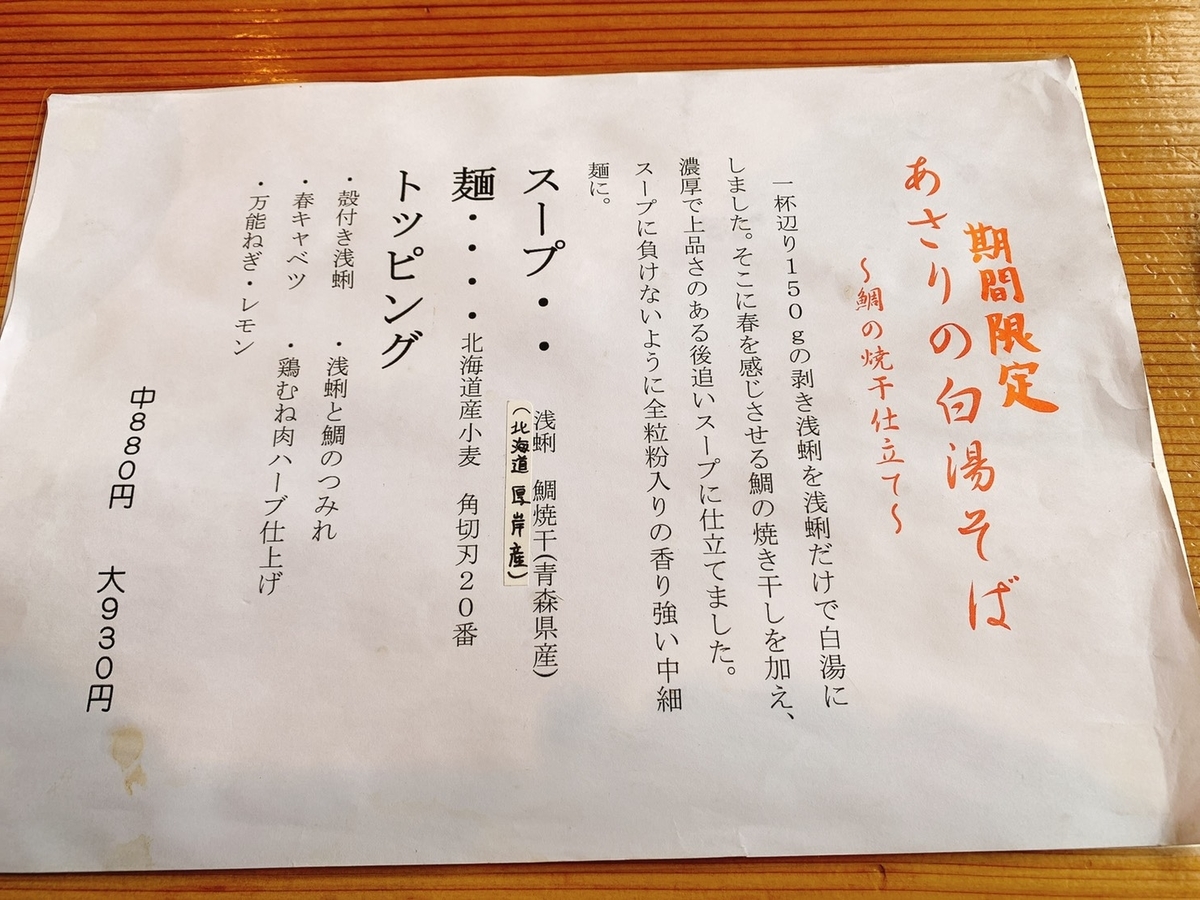 期間限定
あさりの白湯そば
～鯛の焼干仕立て～
一杯辺り150gの剥き浅蜊を浅蜊だけで白湯に
しました。そこに春を感じさせる鯛の焼き干しを加え、
濃厚で上品さのある後追いスープに仕立てました。
スープに負けないように全粒粉入りの香り強い中細
麺に。
スープ・・ 浅蜊 鯛焼干(青森県産)
(北海道 厚岸産)
麺・・・・北海道産小麦 角切刃20番
トッピング
・殻付き浅蜊 ・浅蜊と鯛のつみれ
・春キャベツ ・鶏むね肉ハーブ仕上げ
・万能ねぎ・レモン
中880円 大930円